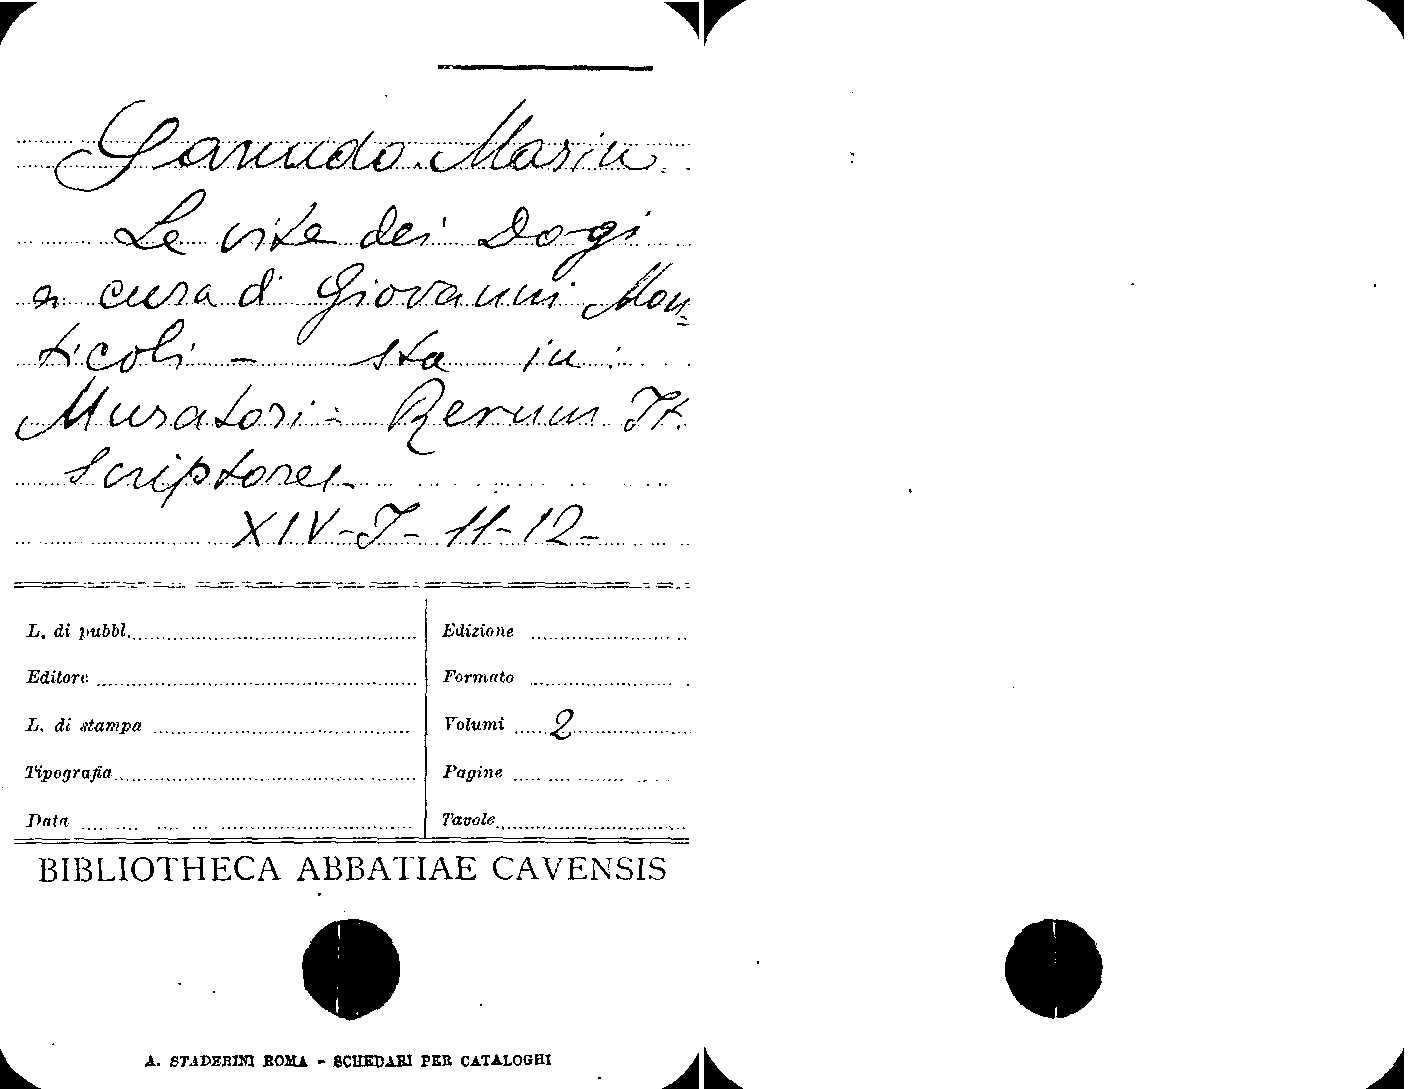 Sanudo. Marin.
Le vite dei Dogi
a cura di Giovanni Mon=
ticoli - sta in:
Muratori - Rerum It.
Scriptores -
XIV - I - 11 - 12 -
L. di pubbl.
Edizione
Editore
Formato
L. di stampa
Volumi 2
Tipografia
Pagine
Data
Tavole
BIBLIOTHECA ABBATIAE CAVENSIS
A. STADERINI ROMA - SCHEDARI PER CATALOGHI